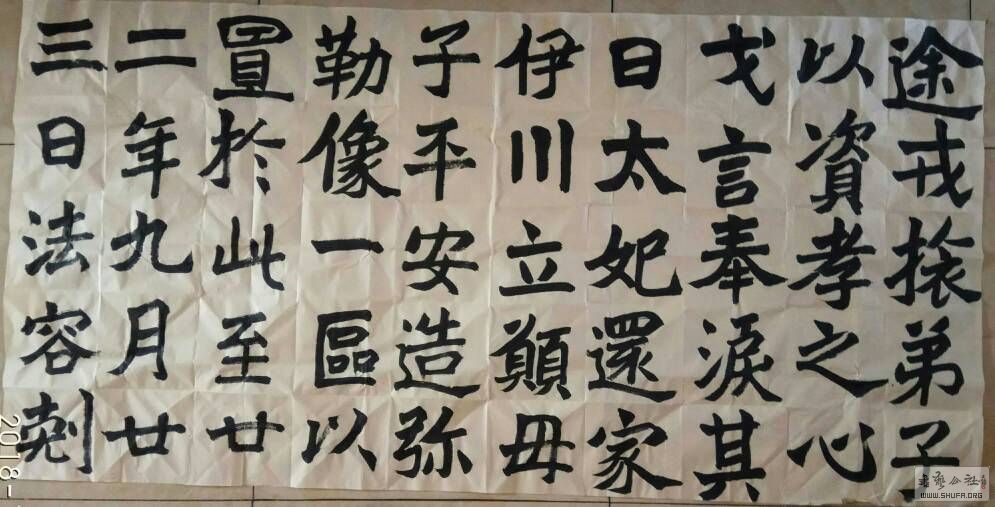 途戎旅弟子
以資孝之心
戈言奉淚其
日太妃還家
伊川立顛毋
子平安造弥
勒像一區以
置於此至廿
二年九月廿
三日法容剋
2018-
WWW.SHUFA.ORG